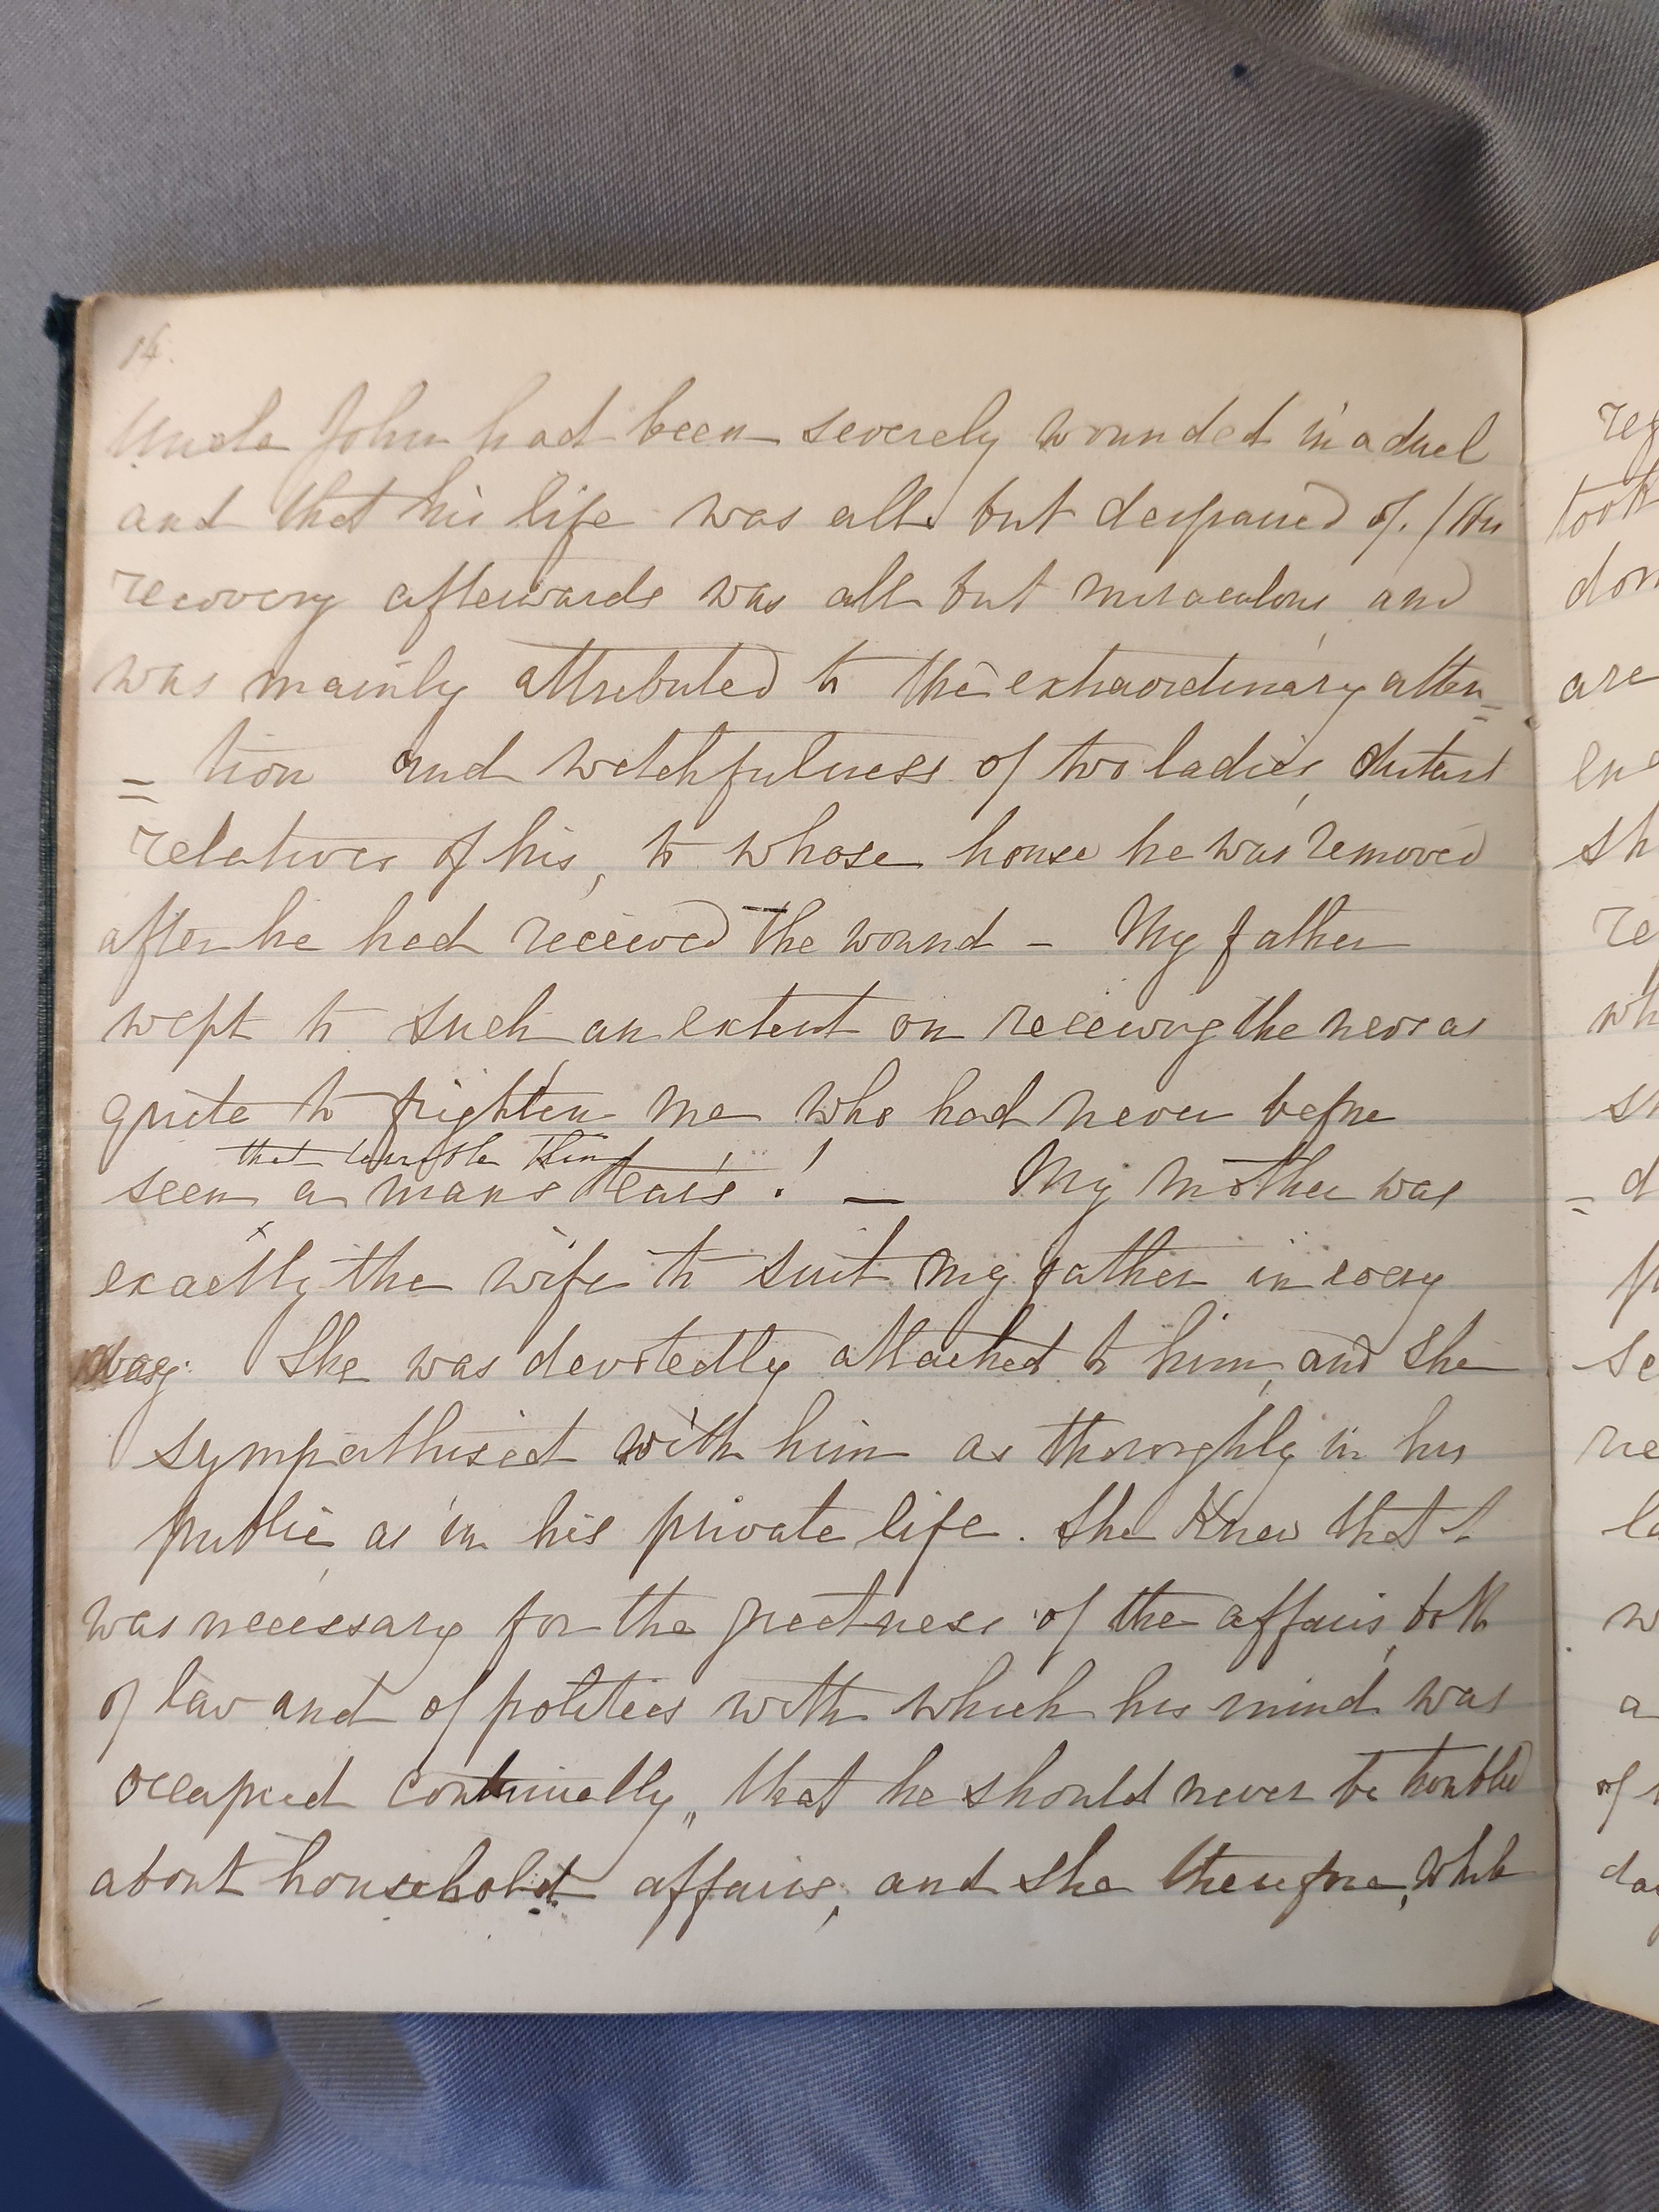 14.
Uncle John had been severely wounded in a duel
and that his life was all but despaired of. (His
recovery afterwards was all but miraculous and
was mainly attributed to the extraordinary atten=
= tion and watchfulness of two ladies, distant
relatives of his, to whose house he was removed
after he had received the wound - My father
wept to such an extent on receiving the news as
quite to frighten me who had never before
that terrible thing
seen a mans tears! — My mother was
exactly the wife to suit my father in every
way. She was devotedly attached to him, and she
sympathised with him as thoroughly in his
public as in his private life. She knew that it
was necessary for the greatness of the affairs, both
of law and of politics with which his mind was
occupied continually, that he should never be troubled
about household affairs, and she therefore, while
reg
took
don
are
ene
sh
re
wh
sh
= d
se
re
la
w
a
of
day